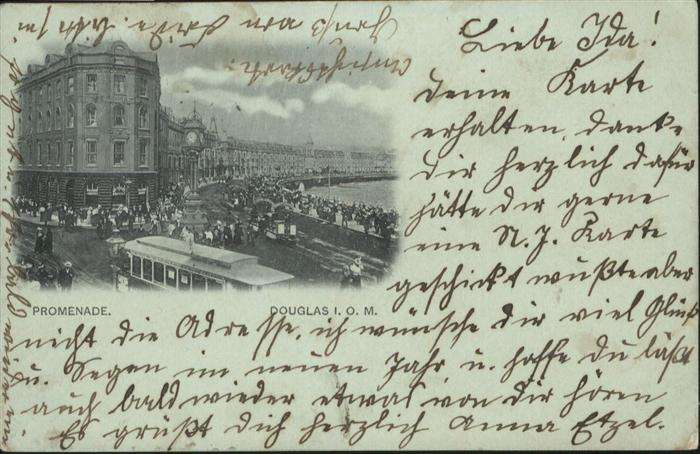 Liebe Ida!
deine Karte
erhalten, danke
dir herzlich dafür
hätte dir gerne
eine N. J. Karte
geschickt wußte aber
nicht die Adresse, ich wünsche dir viel Glück
u. Segen im neuen Jahr u. hoffe du läßt
auch bald wieder etwas von dir hören
Es grüßt dich herzlich Anna Etzel.
PROMENADE.
DOUGLAS I. O. M.
Gruß an